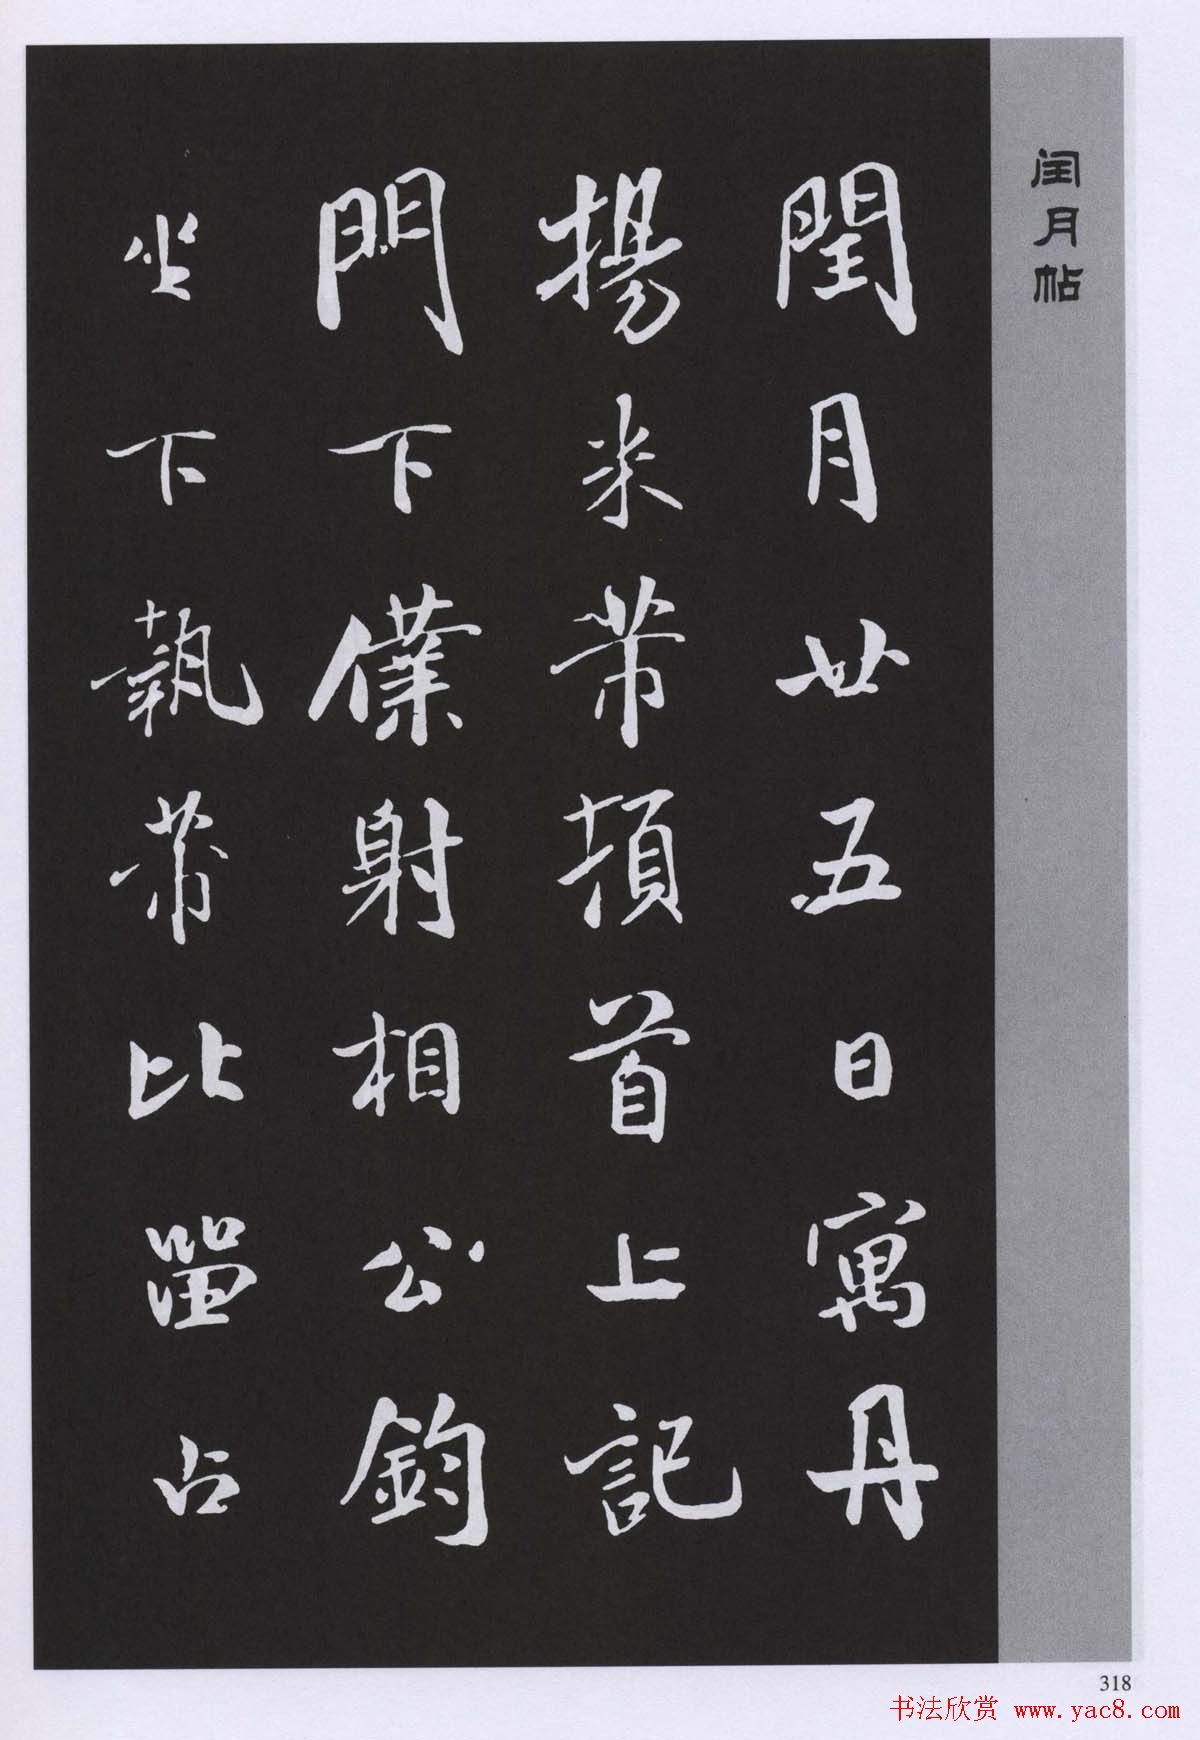 闰月帖
閏月廿五日寓丹
揚米芾頓首上記
門下僕射相公鈞
坐下執芾比罶占
318
书法欣赏 www.yac8.com